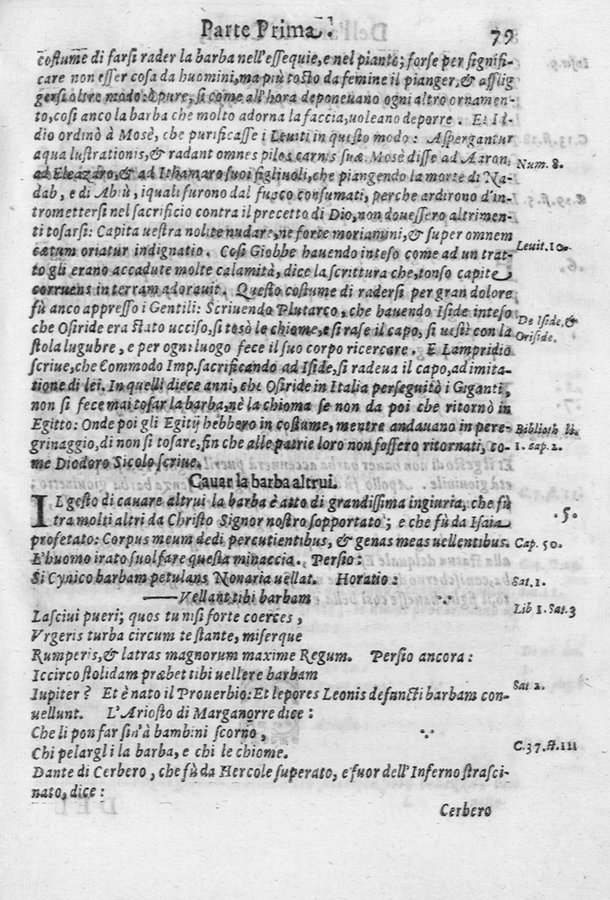 Parte Prima.
79
costume di farsi rader la barba nell'essequie, e nel pianto; forse per signifi-
care non esser cosa da huomini, ma più tosto da femine il pianger, & afflig
gersi oltre modo: ò pure, si come all'hora deponeuano ogni altro ornamen-
to, così anco la barba che molto adorna la faccia, uoleano deporre. Et Id-
dio ordinò a Mosè, che purificasse i Leuiti in questo modo: Aspergantur
aqua lustrationis, & radant omnes pilos carnis suæ. Mosè disse ad Aaron,
Num. 8.
ad Eleazaro, & ad Ithamaro suoi figliuoli, che piangendo la morte di Na-
dab, e di Abiù, iquali furono dal fuoco consumati, perche ardirono d'in-
tromettersi nel sacrificio contra il precetto di Dio, non douessero altrimen-
ti tosarsi: Capita uestra nolite nudare, ne forte moriamini, & super omnem
cætum oriatur indignatio. Così Giobbe hauendo inteso come ad un trat-
Leuit. 10.
to gli erano accadute molte calamità, dice la scrittura che, tonso capite
corruens in terram adorauit. Questo costume di radersi per gran dolore
fù anco appresso i Gentili: Scriuendo Plutarco, che hauendo Iside inteso
che Osiride era stato ucciso, si tosò le chiome, e si rase il capo, si uestì con la
De Iside, &
Oriside.
stola lugubre, e per ogni luogo fece il suo corpo ricercare. E Lampridio
scriue, che Commodo Imp. sacrificando ad Iside, si radeua il capo, ad imita-
tione di lei. In quelli diece anni, che Osiride in Italia perseguitò i Giganti,
non si fece mai tosar la barba, nè la chioma se non da poi che ritornò in
Egitto: Onde poi gli Egitij hebbero in costume, mentre andauano in pere-
Biblioth. li.
grinaggio, di non si tosare, fin che alle patrie loro non fossero ritornati, co-
1. cap. 2.
me Diodoro Sicolo scriue.
Cauar la barba altrui.
IL gesto di cauare altrui la barba è atto di grandissima ingiuria, che fù
5.
tra molti altri da Christo Signor nostro sopportato; e che fù da Isaia
profetato: Corpus meum dedi percutientibus, & genas meas uellentibus.
Cap. 50.
E l'huomo irato suol fare questa minaccia. Persio:
Si Cynico barbam petulans Nonaria uellat. Horatio:
Sat. 1.
——Vellant tibi barbam
Lasciui pueri; quos tu nisi forte coerces,
Lib 1. Sat. 3
Vrgeris turba circum te stante, miserque
Rumperis, & latras magnorum maxime Regum. Persio ancora:
Iccirco stolidam præbet tibi uellere barbam
Iupiter? Et è nato il Prouerbio: Et lepores Leonis defuncti barbam con-
Sat. 2.
uellunt. L'Ariosto di Marganorre dice:
Che li pon far sin'à bambini scorno,
Chi pelargli la barba, e chi le chiome.
C. 37. st. 111
Dante di Cerbero, che fù da Hercole superato, e fuor dell'Inferno strasci-
nato, dice:
Cerbero